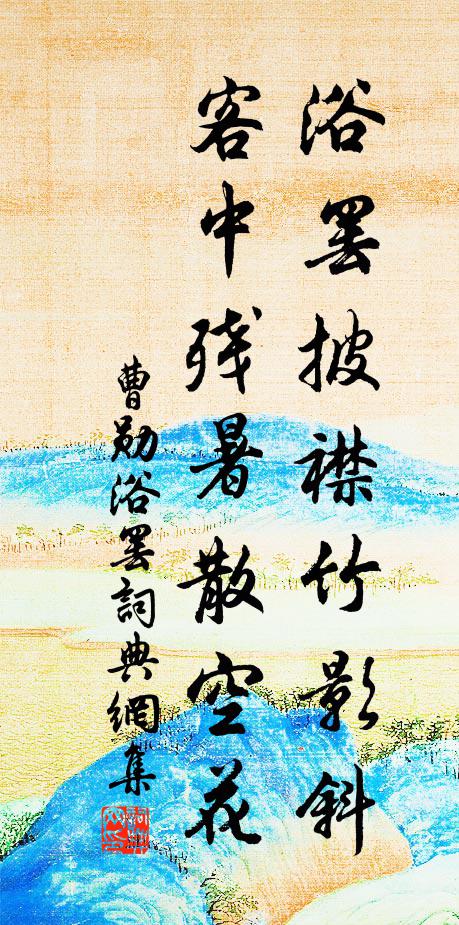 浴罢披襟竹影斜
客中残暑散空花
曹勋浴罢詞典網集